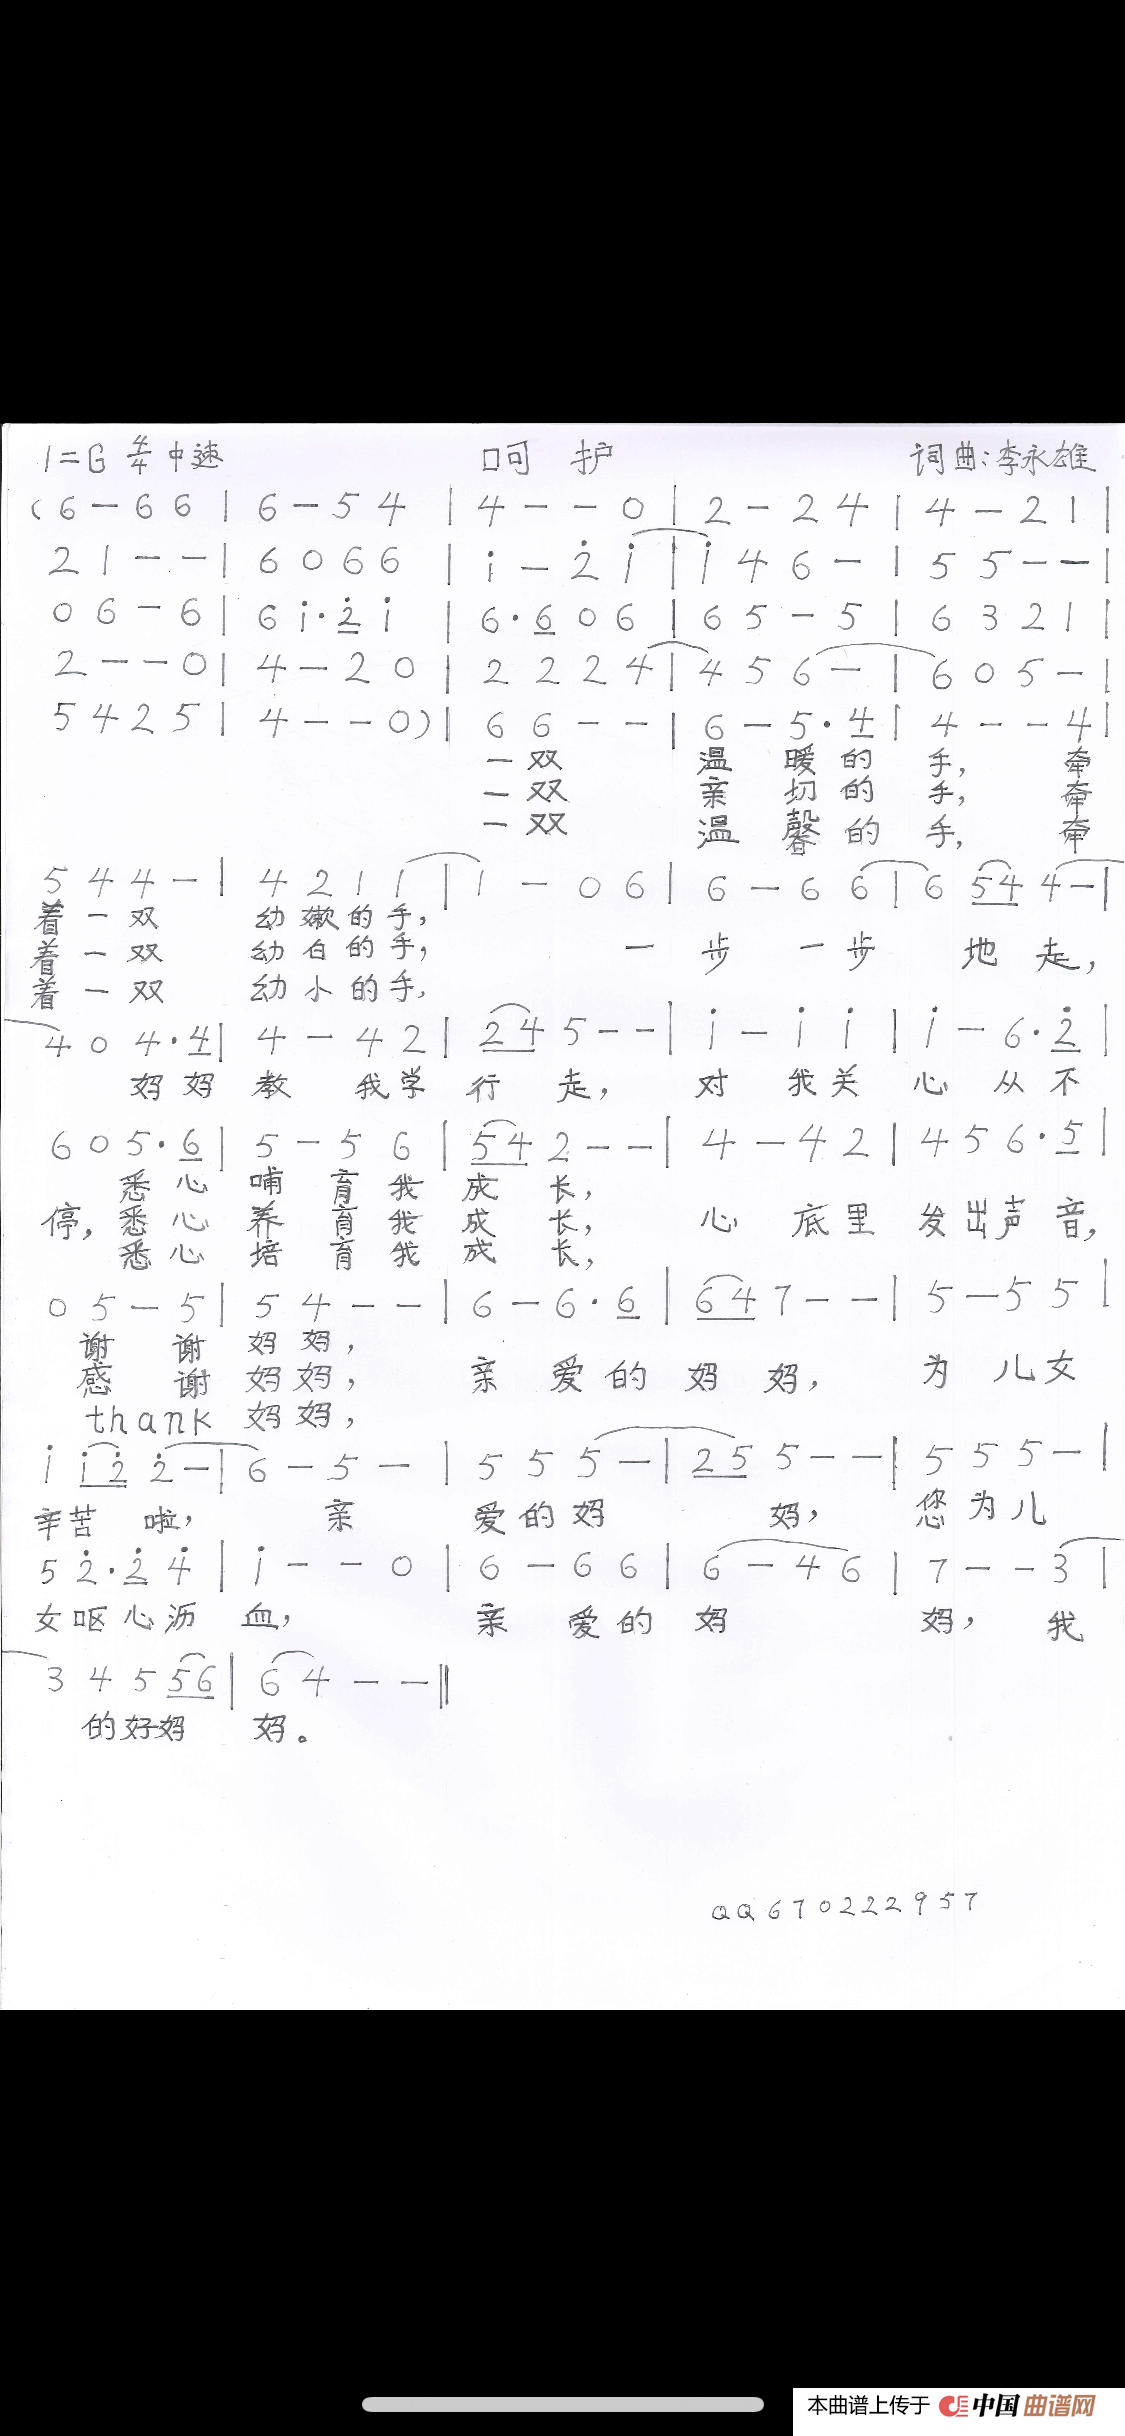 1=G 4/4 中速 呵护 词曲:李永雄
(6 — 6 6 | 6 — 5 4 | 4 — — 0 | 2 — 2 4 | 4 — 2 1 |
2 1 — — | 6 0 6 6 | i — 2̇ i | i 4 6 — | 5 5 — — |
0 6 — 6 | 6 i· 2̇ i | 6· 6 0 6 | 6 5 — 5 | 6 3 2 1 |
2 — — 0 | 4 — 2 0 | 2 2 2 4 | 4 5 6 — | 6 0 5 — |
5 4 2 5 | 4 — — 0) | 6 6 — — | 6 — 5· 4 | 4 — — 4 |
一双 温暖的手, 牵
一双 亲切的手, 牵
一双 温馨的手, 牵
5 4 4 — | 4 2 1 1 | 1 — 0 6 | 6 — 6 6 | 6 5 4 4 — |
着一双 幼嫩的手,
着一双 幼白的手, 一步一步地走,
着一双 幼小的手,
4 0 4· 4 | 4 — 4 2 | 2 4 5 — — | i — i i | i — 6· 2̇ |
妈妈教我学行走, 对我关心从不
6 0 5· 6 | 5 — 5 6 | 5 4 2 — — | 4 — 4 2 | 4 5 6· 5 |
悉心哺育我成长,
停, 悉心养育我成长, 心底里发出声音,
悉心培育我成长,
0 5 — 5 | 5 4 — — | 6 — 6· 6 | 6 4 7 — — | 5 — 5 5 |
谢谢妈妈,
感谢妈妈, 亲爱的妈妈, 为儿女
thank 妈妈,
i i 2̇ 2̇ — | 6 — 5 — | 5 5 5 — | 2 5 5 — — | 5 5 5 — |
辛苦啦, 亲爱的妈妈, 您为儿
5 2̇· 2̇ 4̇ | i — — 0 | 6 — 6 6 | 6 — 4 6 | 7 — — 3 |
女呕心沥血, 亲爱的妈妈, 我
3 4 5 5 6 | 6 4 — — ‖
的好妈妈。
QQ670222957
本曲谱上传于 中国曲谱网